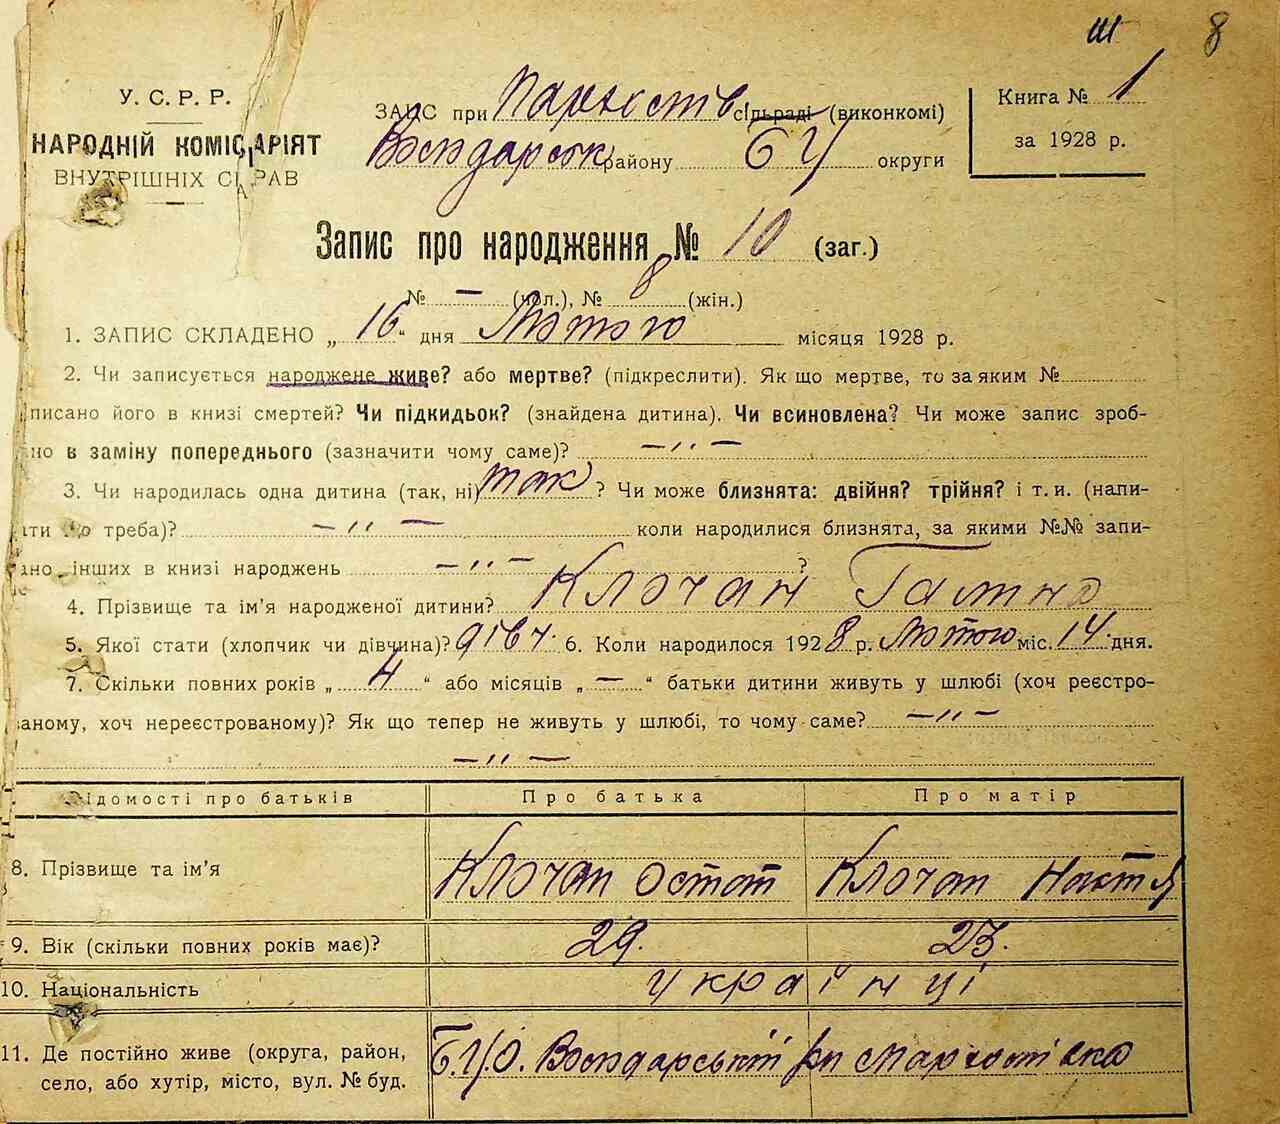 ш 8
У. С. Р. Р.
НАРОДНІЙ КОМІСАРІЯТ
ВНУТРІШНІХ СПРАВ
ЗАПС при сільраді (виконкомі)
району БЦ округи
Книга № 1
за 1928 р.
Запис про народження № 10 (заг.)
№ — (чол.), № 8 (жін.)
1. ЗАПИС СКЛАДЕНО „ 16 “ дня Лютого місяця 1928 р.
2. Чи записується народжене живе? або мертве? (підкреслити). Як що мертве, то за яким №
писано його в книзі смертей? Чи підкидьок? (знайдена дитина). Чи всиновлена? Чи може запис зроб-
но в заміну попереднього (зазначити чому саме)? —„—
3. Чи народилась одна дитина (так, ні) так ? Чи може близнята: двійня? трійня? і т. и. (напи-
ати що треба)? —„— коли народилися близнята, за якими №№ запи-
ано інших в книзі народжень —„— ?
4. Прізвище та ім'я народженої дитини? Клочан Галина
5. Якої стати (хлопчик чи дівчина)? дівч. 6. Коли народилося 1928 р. Лютого міс. 14 дня.
7. Скільки повних років „ 4 “ або місяців „ — “ батьки дитини живуть у шлюбі (хоч реєстро-
ваному, хоч нереєстрованому)? Як що тепер не живуть у шлюбі, то чому саме? —„—
—„—
Відомості про батьків Про батька Про матір
8. Прізвище та ім'я Клочан Остап Клочан Настя
9. Вік (скільки повних років має)? 29. 23.
10. Національність українці
11. Де постійно живе (округа, район,
село, або хутір, місто, вул. № буд.
Б.Ц.О.